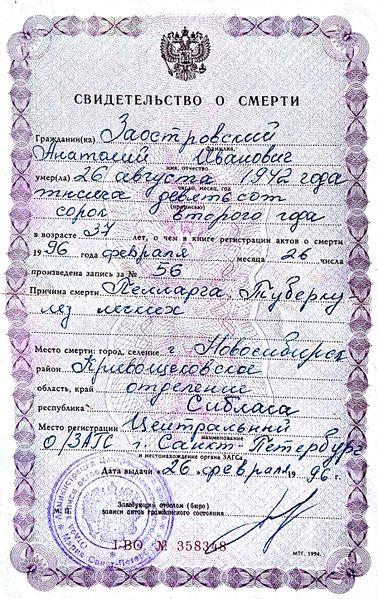 СВИДЕТЕЛЬСТВО О СМЕРТИ
Гражданин(ка) Заостровский
фамилия,
Анатолий Иванович
имя, отчество
умер(ла) 26 августа 1942 года
число, месяц, год
тысяча девятьсот
(прописью)
сорок второго года
в возрасте 37 лет, о чем в книге регистрации актов о смерти
1996 года февраля месяца 26 числа
произведена запись за № 56
Причина смерти Пелларга, Туберку
лез легких
Место смерти: город, селение г. Новосибирск
район Кривощековское
область, край отделение
республика Сиблага
Место регистрации Центральный
наименование
О/ЗАГС г. Санкт-Петербург
и местонахождение органа ЗАГСа
Дата выдачи «26» февраля 1996 г.
Заведующий отделом (бюро)
М. П. записи актов гражданского состояния
I-ВО № 358348
МТГ. 1994.